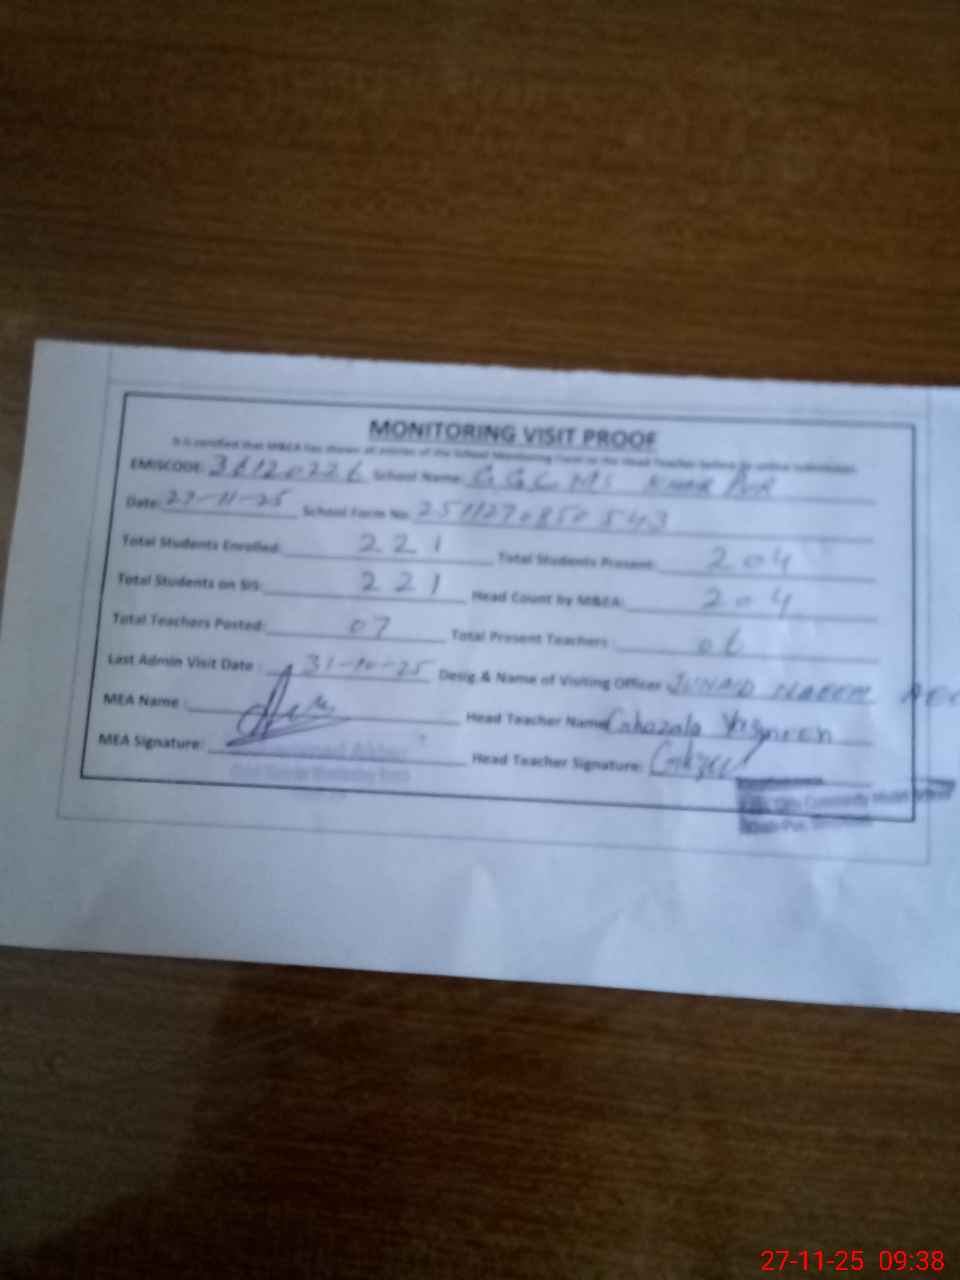 MONITORING VISIT PROOF
It is certified that M&EA has shown all entries of the School Monitoring Form to the Head Teacher before its online submission.
EMISCODE: 36120226 School Name: G G C M S Khar Pur
Date: 27-11-25 School Form No: 251127085 0543
Total Students Enrolled: 221 Total Students Present: 204
Total Students on SIS: 221 Head Count by M&EA: 204
Total Teachers Posted: 07 Total Present Teachers: 06
Last Admin Visit Date: 31-10-25 Desig & Name of Visiting Officer: JUNAID NAEEM AEO
MEA Name: Head Teacher Name: Ghazala Yasmeen
MEA Signature: Head Teacher Signature:
Community Model
27-11-25 09:38